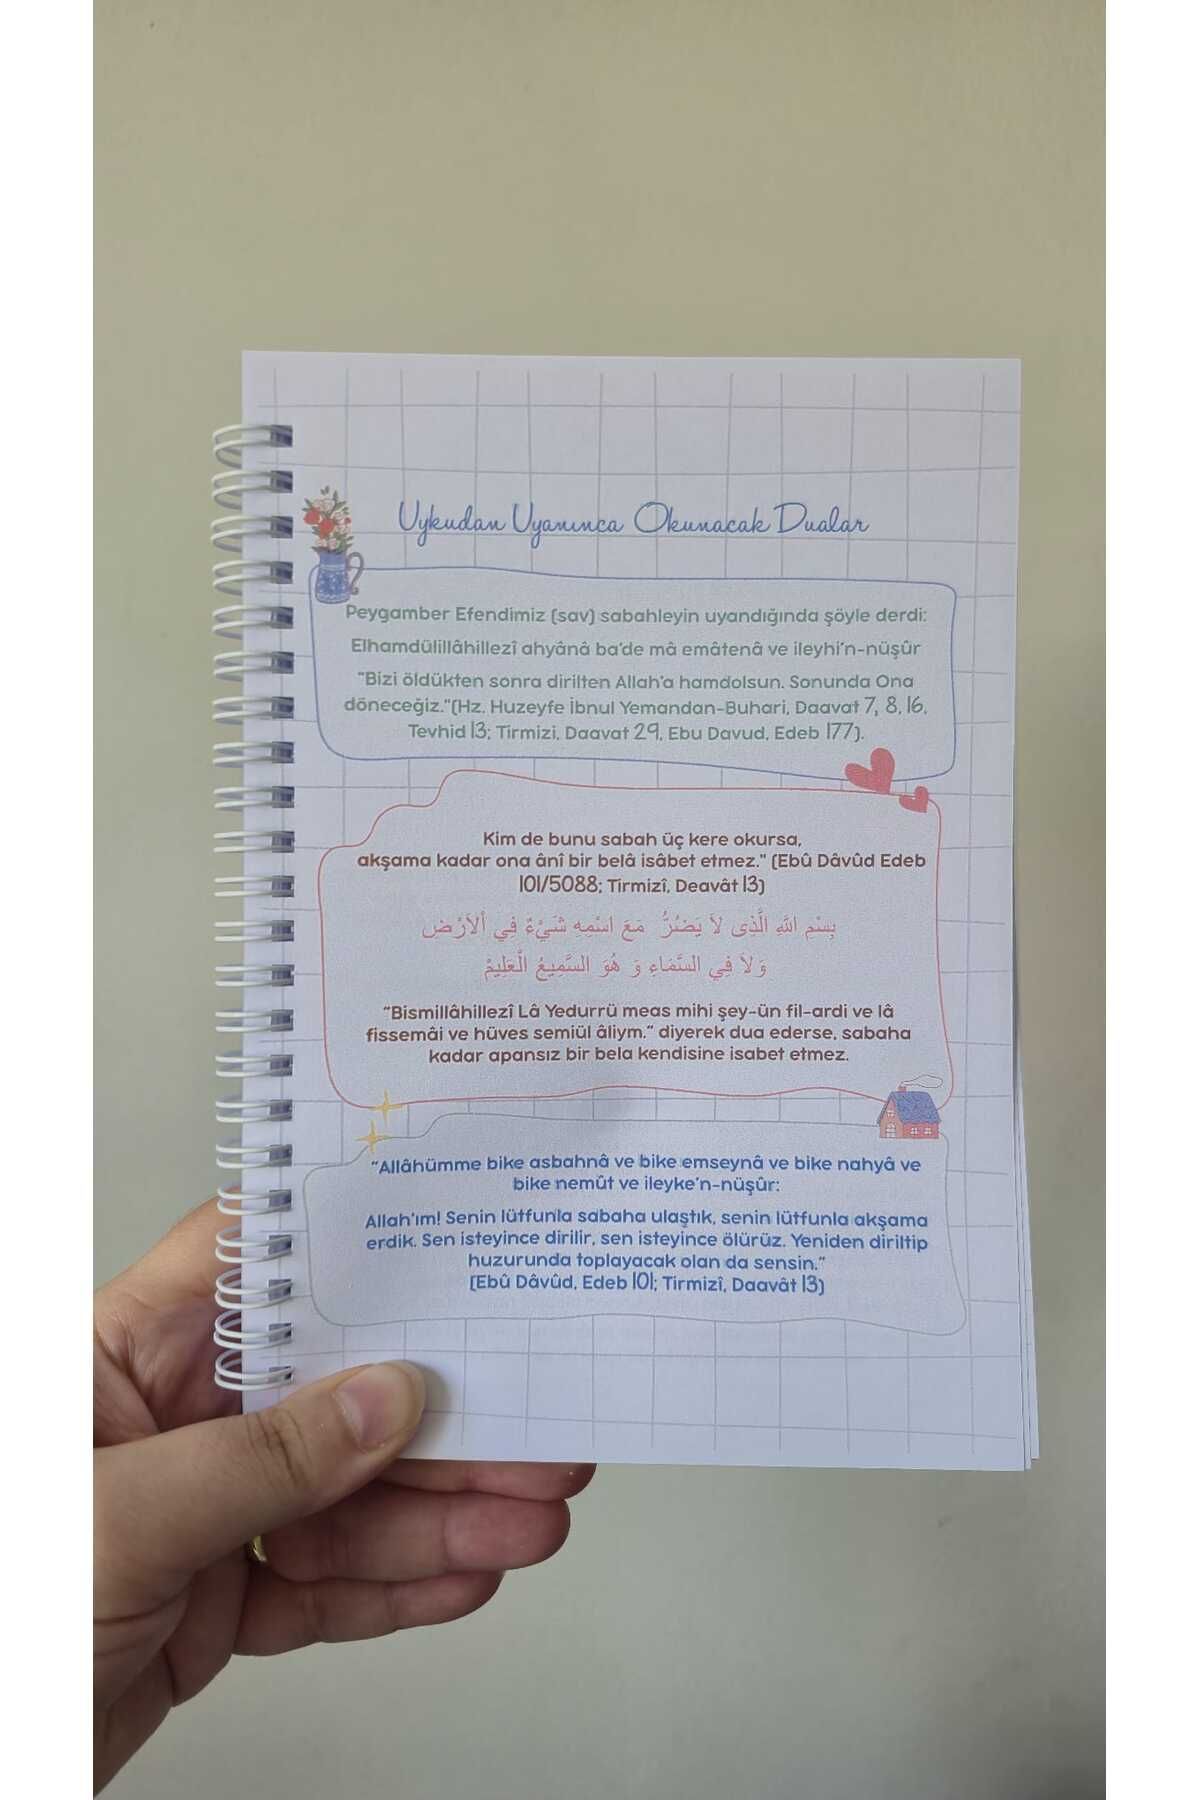 Uykudan Uyanınca Okunacak Dualar
Peygamber Efendimiz (sav) sabahleyin uyandığında şöyle derdi:
Elhamdülillâhillezî ahyânâ ba'de mâ emâtenâ ve ileyhi'n-nüşûr
"Bizi öldükten sonra dirilten Allah'a hamdolsun. Sonunda Ona
döneceğiz."(Hz. Huzeyfe İbnul Yemandan-Buhari, Daavat 7, 8, 16,
Tevhid 13; Tirmizi, Daavat 29, Ebu Davud, Edeb 177).
Kim de bunu sabah üç kere okursa,
akşama kadar ona ânî bir belâ isâbet etmez." (Ebû Dâvûd Edeb
101/5088; Tirmizî, Deavât 13)
بِسْمِ اللهِ الَّذِى لاَ يَضُرُّ مَعَ اسْمِهِ شَيْءٌ فِي اْلاَرْضِ
وَلاَ فِي السَّمَاءِ وَ هُوَ السَّمِيعُ الْعَلِيمُ
"Bismillâhillezî Lâ Yedurrü meas mihi şey-ün fil-ardi ve lâ
fissemâi ve hüves semiül âliym." diyerek dua ederse, sabaha
kadar apansız bir bela kendisine isabet etmez.
"Allâhümme bike asbahnâ ve bike emseynâ ve bike nahyâ ve
bike nemût ve ileyke'n-nüşûr:
Allah'ım! Senin lütfunla sabaha ulaştık, senin lütfunla akşama
erdik. Sen isteyince dirilir, sen isteyince ölürüz. Yeniden diriltip
huzurunda toplayacak olan da sensin."
(Ebû Dâvûd, Edeb 101; Tirmizî, Daavât 13)